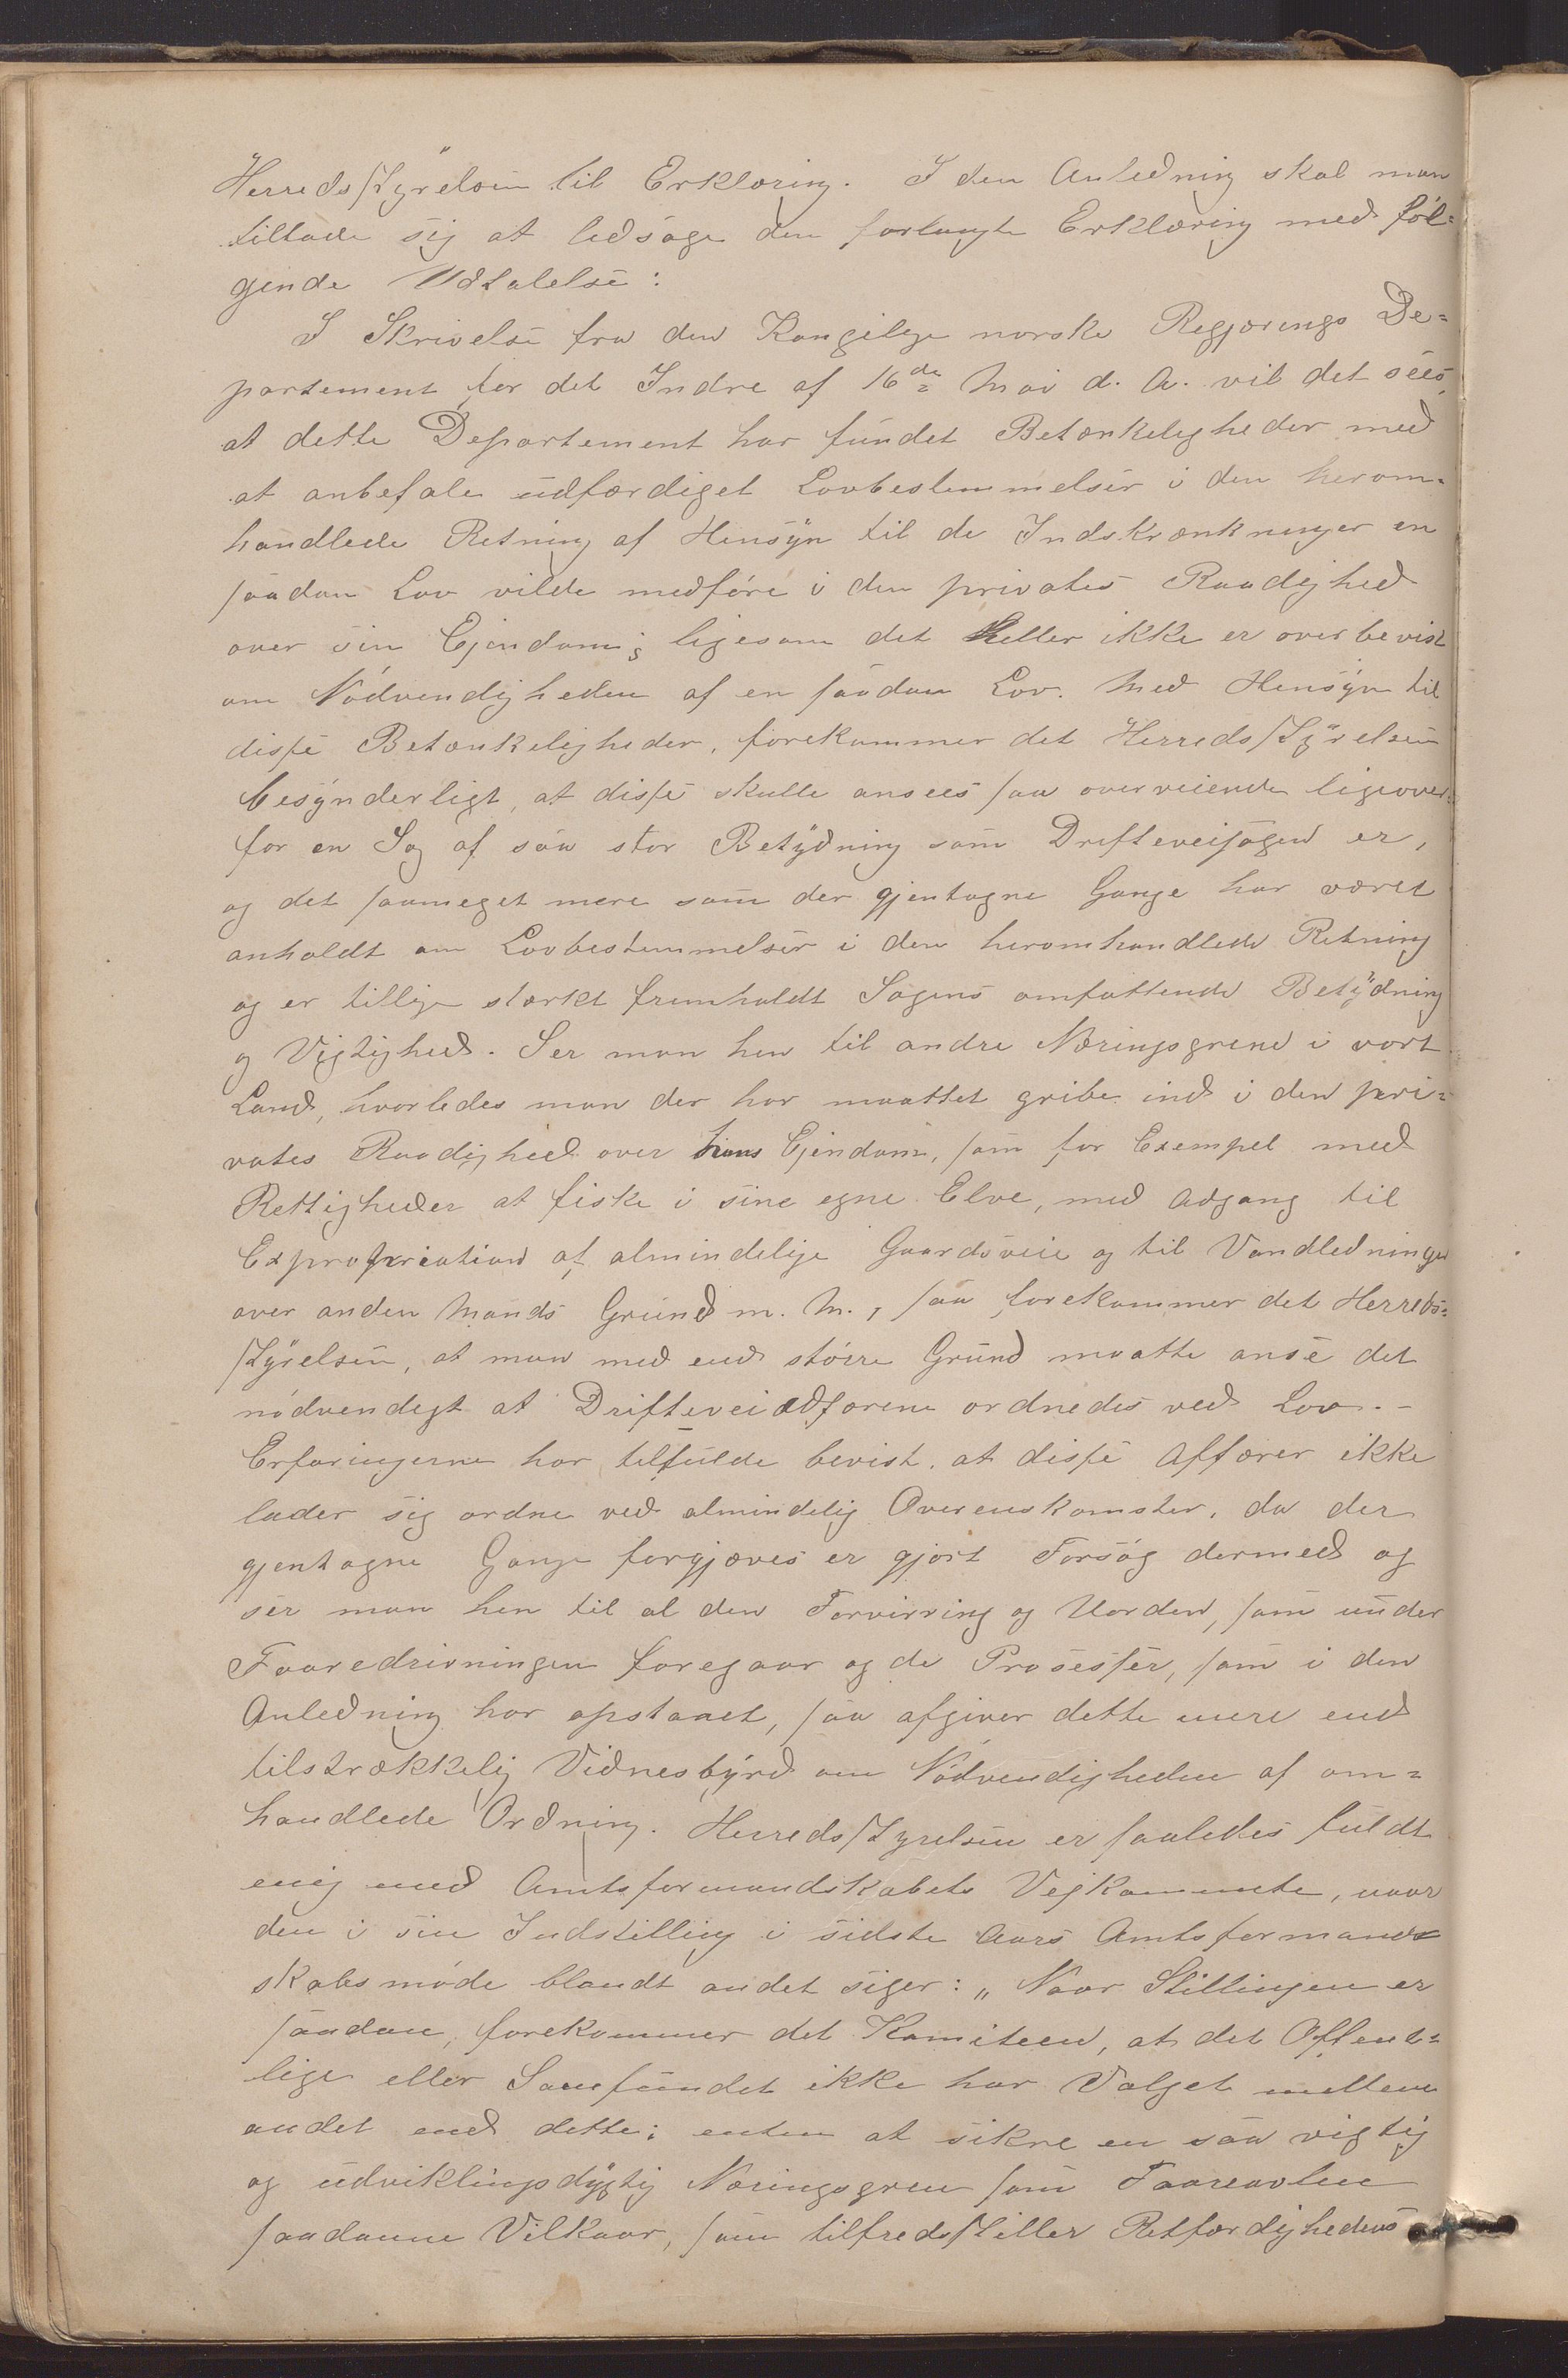 Herredsstyrelsen til Erklæring. I den Anledning skal man
tillade sig at ledsage den forlangte Erklæring med føl-
gende Udtalelse:
I Skrivelse fra den Kongelige norske Regjerings De-
partement for det Indre af 16de Mai d. A. vil det sees,
at dette Departement har fundet Betænkeligheder med
at anbefale udfærdiget Lovbestemmelser i den herom-
handlede Retning af Hensyn til de Indskrænkninger en
saadan Lov vilde medføre i den privates Raadighed
over sin Ejendom; ligesom det heller ikke er overbevist
om Nødvendigheden af en saadan Lov. Med Hensyn til
disse Betænkeligheder, forekommer det Herredsstyrelsen
besynderligt, at disse skulle ansees saa overveiende ligeover-
for en Sag af saa stor Betydning som Drifteveisagen er,
og det saameget mere som der gjentagne Gange har været
anholdt om Lovbestemmelser i den heromhandlede Retning
og er tillige stærkt fremholdt Sagens omfattende Betydning
og Vigtighed. Ser man hen til andre Næringsgrene i vort
Land, hvorledes man der har maattet gribe ind i den pri-
vates Raadighed over hans Ejendom, som for Exempel med
Rettigheder at fiske i sine egne Elve, med Adgang til
Expropriation af almindelige Gaardsveie og til Vandledninger
over anden Mands Grund m. M., saa forekommer det Herreds-
styrelsen, at man med end større Grund maatte anse det
nødvendigt at Drifteveiadfærene ordnedes ved Lov. -
Erfaringerne har tilfulde bevist, at disse Affærer ikke
lader sig ordne ved almindelig Overenskomster, da der
gjentagne Gange forgjæves er gjort Forsøg dermed og
ser man hen til al den Forvirring og Uorden, som under
Faaredrivningen foregaar og de Prosesser, som i den
Anledning har opstaaet, saa afgiver dette mere end
tilstrækkelig Vidnesbyrd om Nødvendigheden af om-
handlede Ordning. Herredsstyrelsen er saaledes fuldt
enig med Amtsformandskabets Vejkommete, naar
den i sin Indstilling i sidste Aars Amtsformand-
skabsmøde blandt andet siger: „Naar Stillingen er
saadan, forekommer det Komiteen, at det Offent-
lige eller Samfundet ikke har Valget mellem
andet end dette: enten at sikre en saa vigtig
og udviklingsdygtig Næringsgren som Faareavlen
saadanne Vilkaar, som tilfredsstiller Retfærdighedens